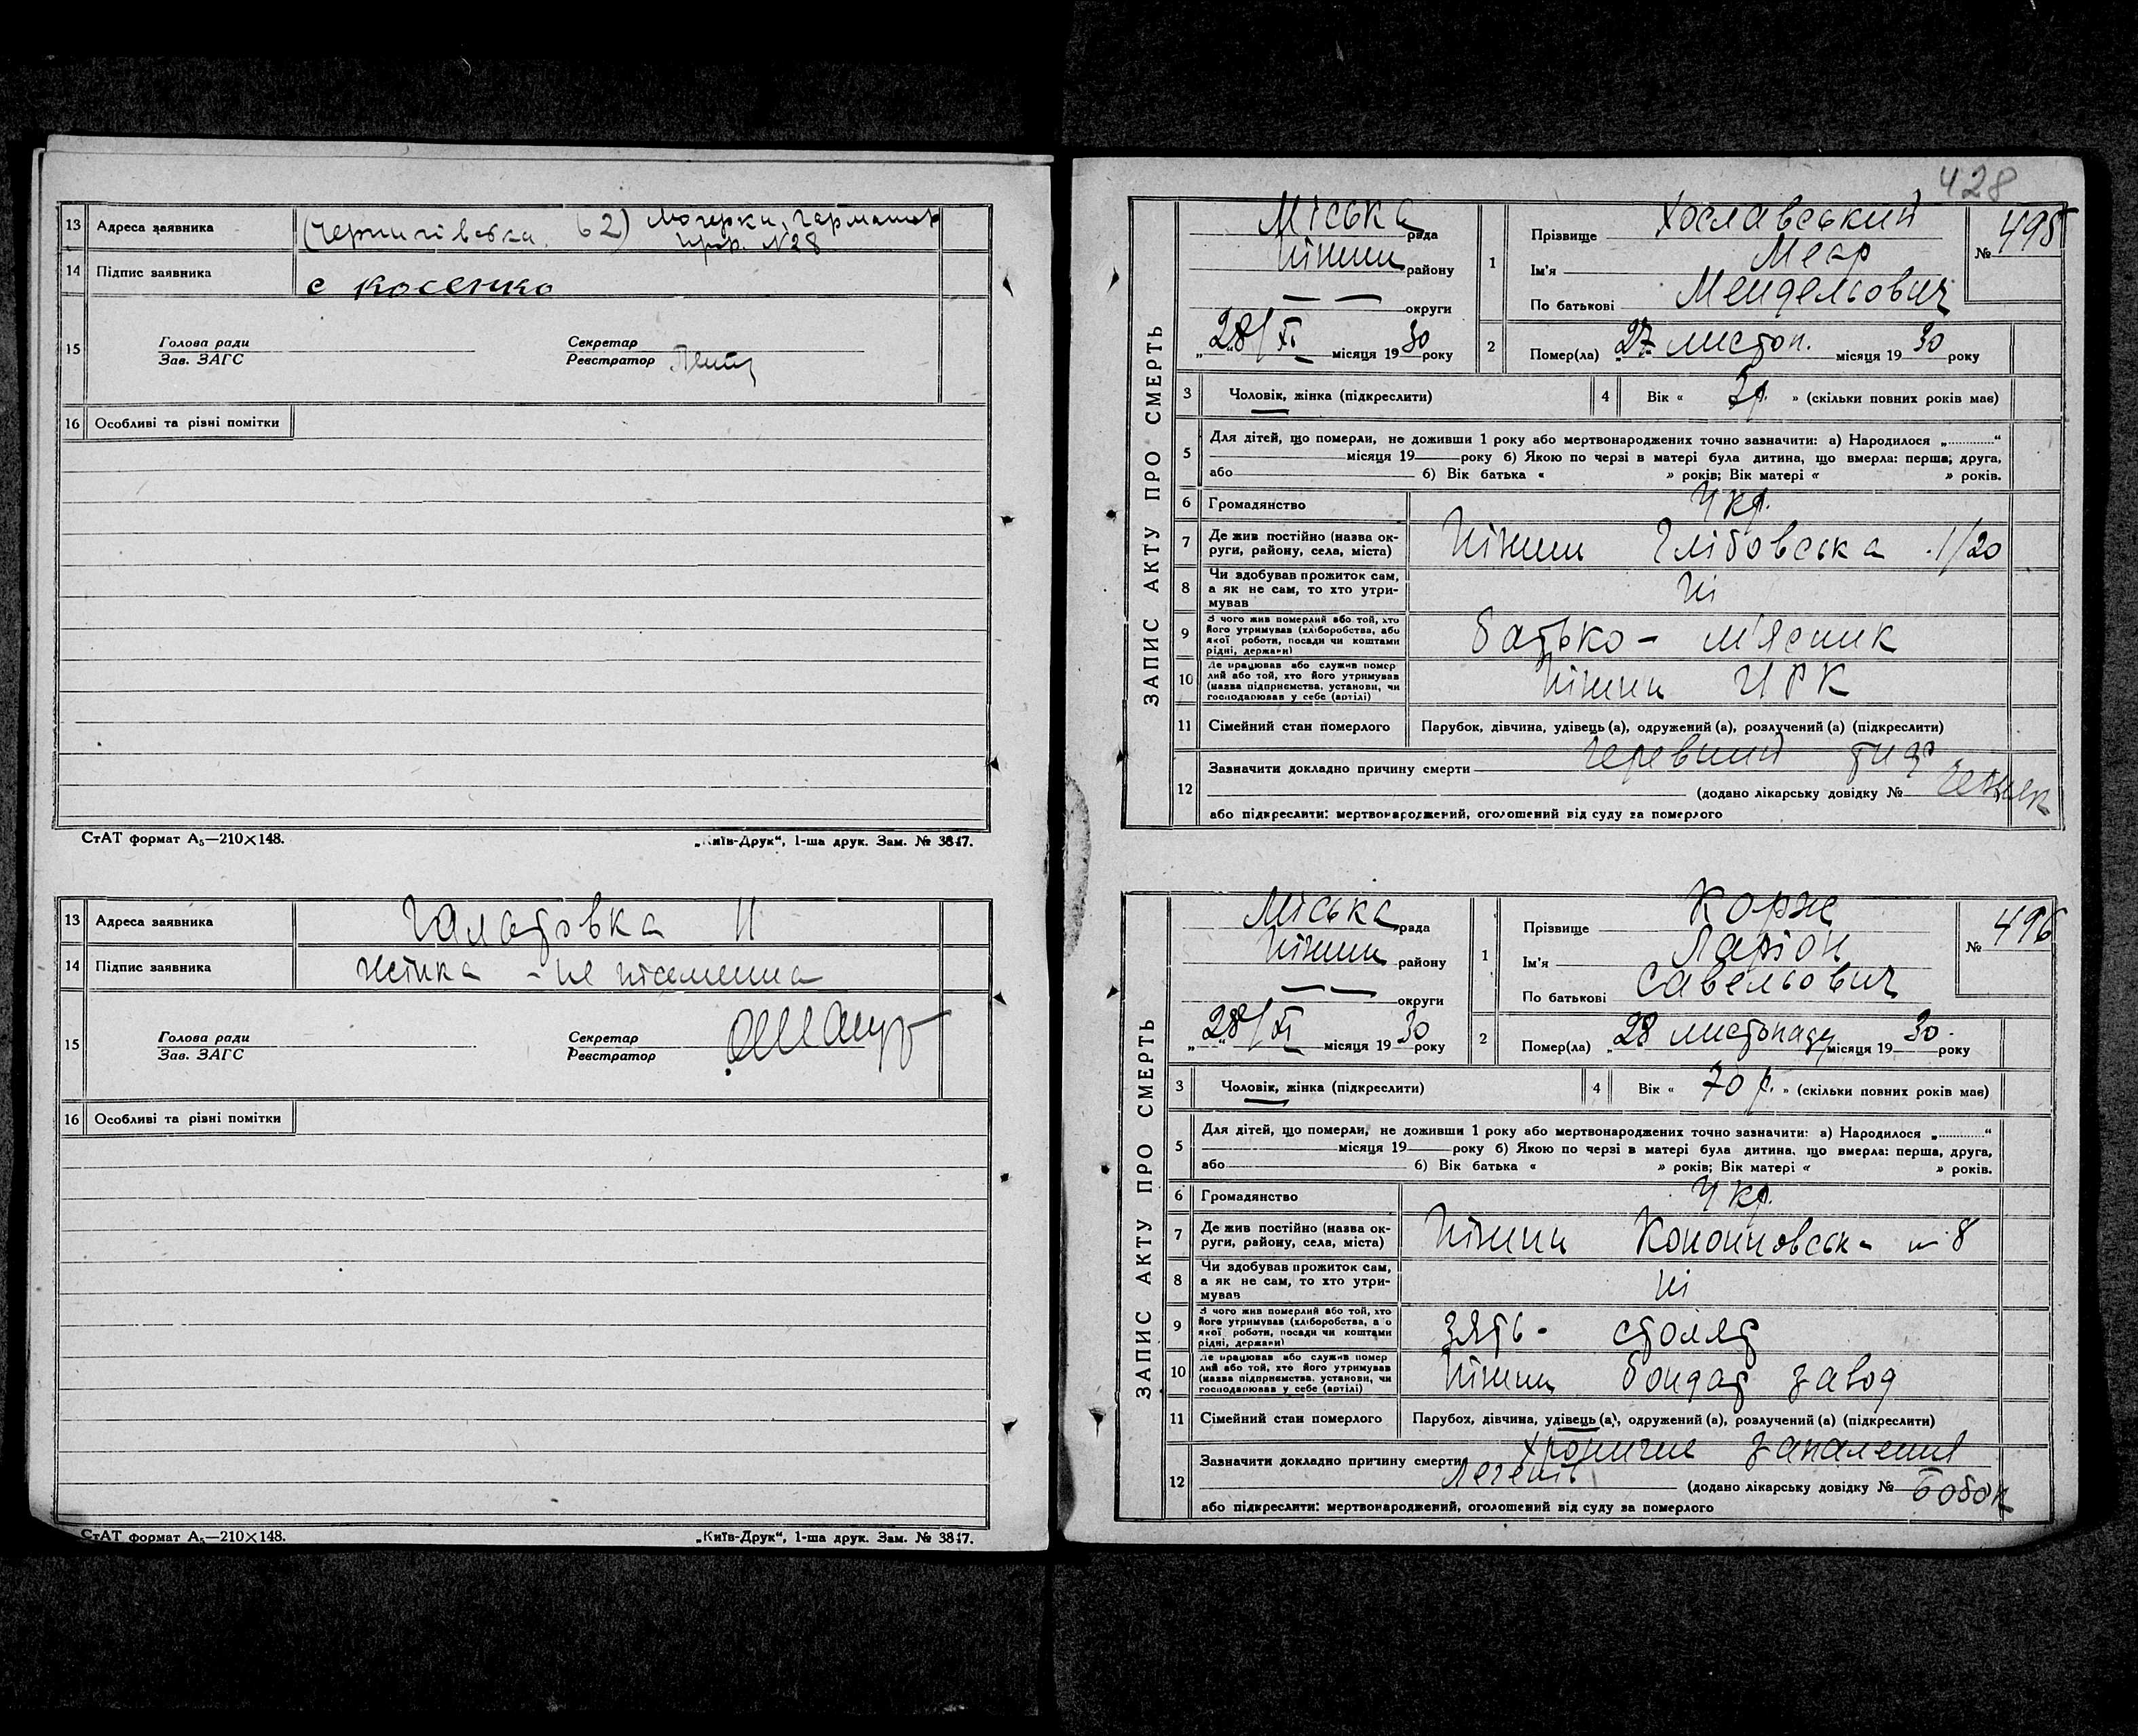 13 Адреса заявника (Чернигівська 62)
пров. №28
14 Підпис заявника с косенко
15 Голова ради
Зав. ЗАГС
Секретар
Реєстратор
16 Особливі та різні помітки
СтАТ формат А₅—210×148. „Київ-Друк“, 1-ша друк. Зам. № 3847.
13 Адреса заявника 11
14 Підпис заявника жінка - не písменна
15 Голова ради
Зав. ЗАГС
Секретар
Реєстратор
16 Особливі та різні помітки
СтАТ формат А₅—210×148. „Київ-Друк“, 1-ша друк. Зам. № 3847.
428
ЗАПИС АКТУ ПРО СМЕРТЬ
Міська рада
Ніжин району
— — округи
„28/XI місяця 1930 року
1 Прізвище Хославський
Ім'я Меєр
По батькові Мендельович
№ 495
2 Помер(ла) „27 листоп. місяця 1930 року
3 Чоловік, жінка (підкреслити)
4 Вік « 3 р. » (скільки повних років має)
5 Для дітей, що померли, не доживши 1 року або мертвонароджених точно зазначити: а) Народилося „............“
місяця 19 року б) Якою по черзі в матері була дитина, що вмерла: перша, друга,
або б) Вік батька « » років; Вік матері « » років.
6 Громадянство Укр.
7 Де жив постійно (назва округи, району, села, міста) Ніжин Глібовська 1/20
8 Чи здобував прожиток сам, а як не сам, то хто утримував Ні
9 З чого жив померлий або той, хто його утримував (хліборобства, або якої роботи, посади чи коштами рідні, держави) батько - м'ясник
10 Де працював або служив померлий або той, хто його утримував (назва підприємства, установи, чи господарював у себе (артілі) Ніжин ЦРК
11 Сімейний стан померлого Парубок, дівчина, удівець (а), одружений (а), розлучений (а) (підкреслити)
12 Зазначити докладно причину смерти черевний тиф
(додано лікарську довідку №
або підкреслити: мертвонароджений, оголошений від суду за померлого
ЗАПИС АКТУ ПРО СМЕРТЬ
Міська рада
Ніжин району
— — округи
„28/XI місяця 1930 року
1 Прізвище Корж
Ім'я Ларіон
По батькові Савельович
№ 496
2 Помер(ла) „28 листопаду місяця 1930 року
3 Чоловік, жінка (підкреслити)
4 Вік « 70 р. » (скільки повних років має)
5 Для дітей, що померли, не доживши 1 року або мертвонароджених точно зазначити: а) Народилося „............“
місяця 19 року б) Якою по черзі в матері була дитина, що вмерла: перша, друга,
або б) Вік батька « » років; Вік матері « » років.
6 Громадянство Укр.
7 Де жив постійно (назва округи, району, села, міста) Ніжин Кононовська № 8
8 Чи здобував прожиток сам, а як не сам, то хто утримував Ні
9 З чого жив померлий або той, хто його утримував (хліборобства, або якої роботи, посади чи коштами рідні, держави) зять - столяр
10 Де працював або служив померлий або той, хто його утримував (назва підприємства, установи, чи господарював у себе (артілі) Ніжин бондар завод
11 Сімейний стан померлого Парубок, дівчина, удівець (а), одружений (а), розлучений (а) (підкреслити)
12 Зазначити докладно причину смерти хронічне запалення
легенів
(додано лікарську довідку № Бобок
або підкреслити: мертвонароджений, оголошений від суду за померлого